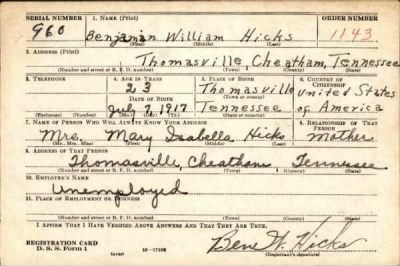 SERIAL NUMBER 1. NAME (Print) ORDER NUMBER
960 Benjamin William Hicks 1143
(First) (Middle) (Last)
2. ADDRESS (Print)
Thomasville, Cheatham, Tennessee
(Number and street or R. F. D. number) (Town) (County) (State)
3. TELEPHONE 4. AGE IN YEARS 5. PLACE OF BIRTH 6. COUNTRY OF CITIZENSHIP
23 Thomasville United States
DATE OF BIRTH (Town or county)
July 7, 1917 Tennessee of America
(Exchange) (Number) (Mo.) (Day) (Yr.) (State or country)
7. NAME OF PERSON WHO WILL ALWAYS KNOW YOUR ADDRESS 8. RELATIONSHIP OF THAT PERSON
Mrs. Mary Isabella Hicks Mother
(Mr., Mrs., Miss) (First) (Middle) (Last)
9. ADDRESS OF THAT PERSON
Thomasville, Cheatham Tennessee
(Number and street or R. F. D. number) (Town) (County) (State)
10. EMPLOYER'S NAME
Unemployed
11. PLACE OF EMPLOYMENT OR BUSINESS
(Number and street or R. F. D. number) (Town) (County) (State)
I AFFIRM THAT I HAVE VERIFIED ABOVE ANSWERS AND THAT THEY ARE TRUE.
REGISTRATION CARD
D. S. S. Form 1 (over) Bene W. Hicks
(Registrant's signature)